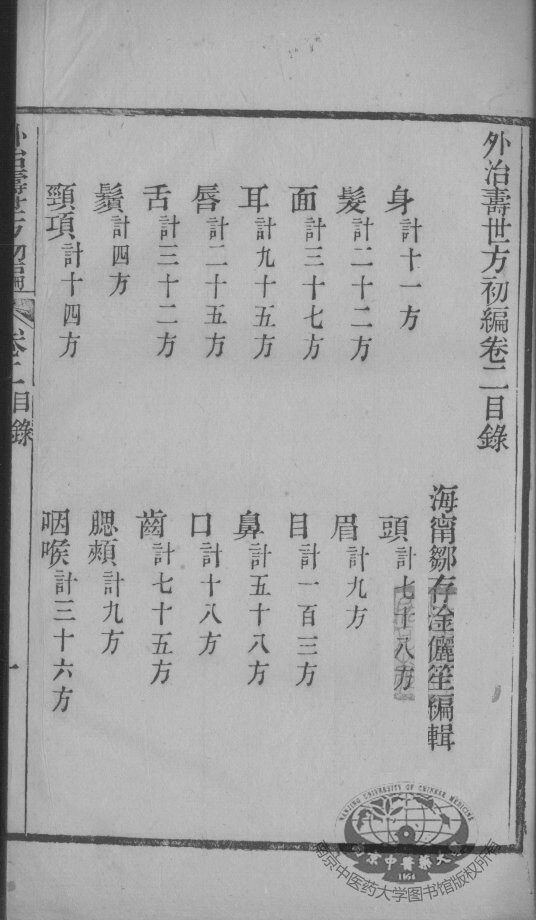 外治壽世方初編卷二目錄
海甯鄒存淦儷笙編輯
身計十一方
頭計七十八方
髮計二十二方
眉計九方
面計三十七方
目計一百三方
耳計九十五方
鼻計五十八方
唇計二十五方
口計十八方
舌計三十二方
齒計七十五方
鬚計四方
腮頰計九方
頸項計十四方
咽喉計三十六方
外治壽世方初編 卷二目錄 一
NANJING UNIVERSITY OF CHINESE MEDICINE
南京中醫藥大學
1954
南京中医药大学图书馆版权所有